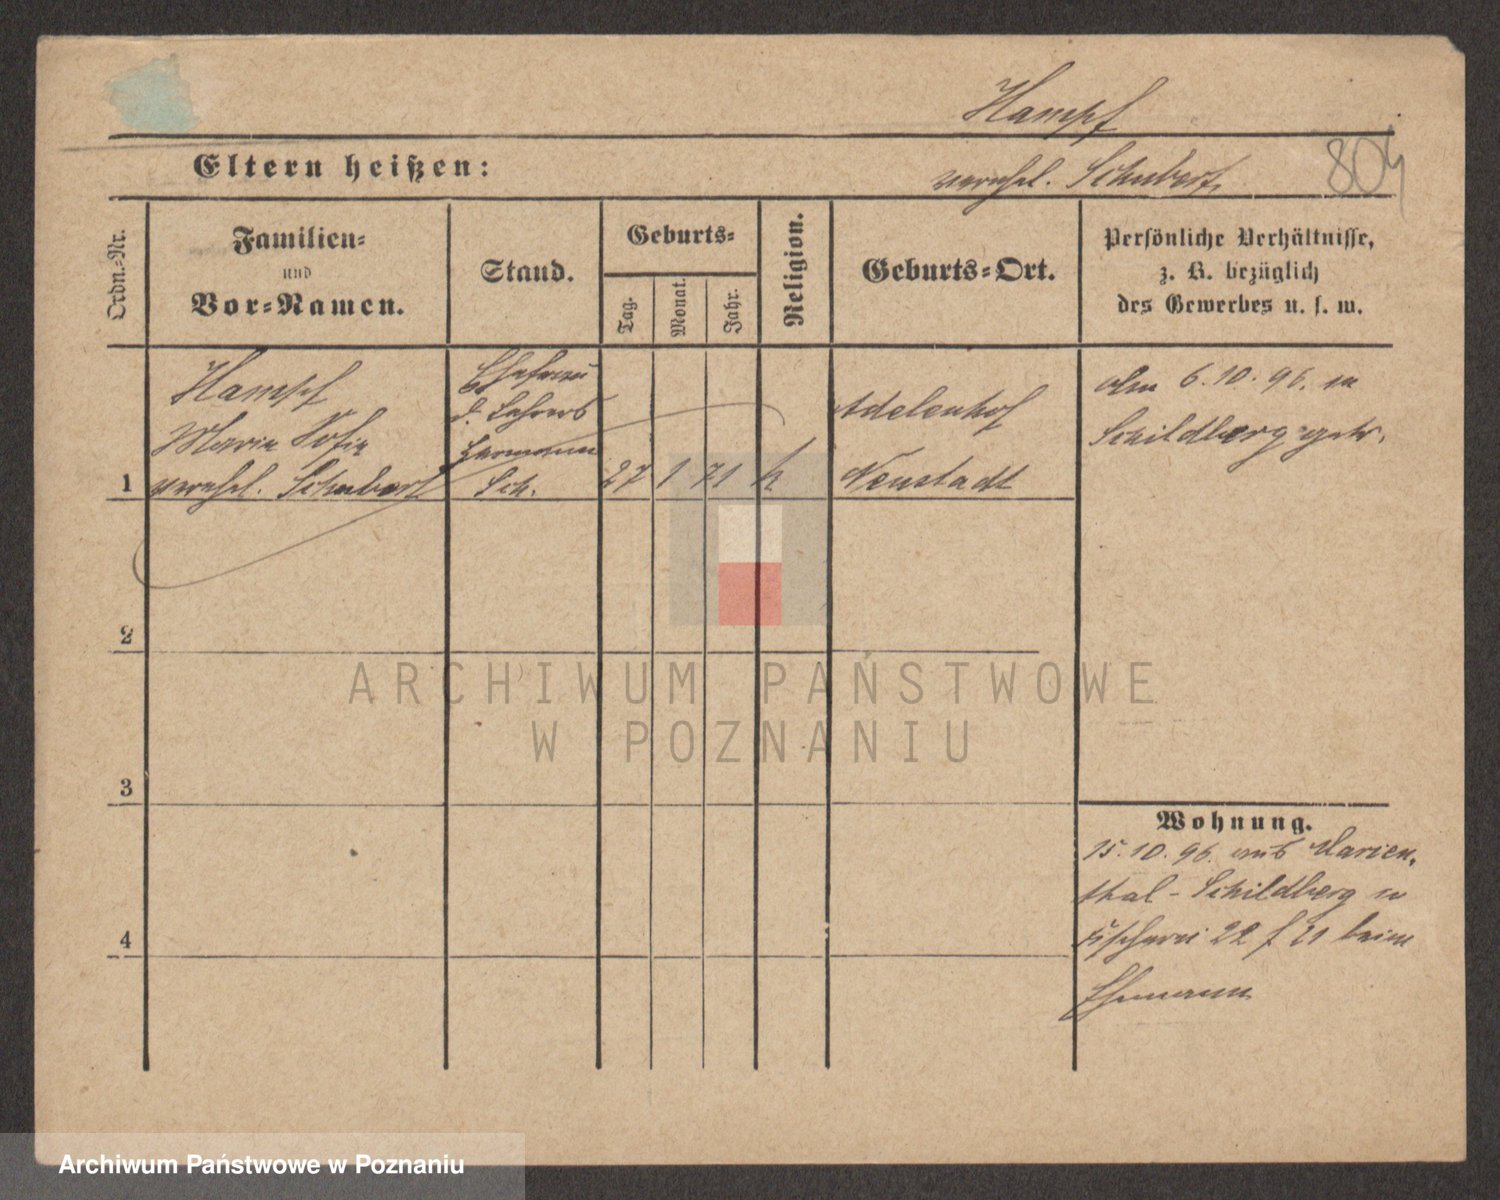 Hampf
Eltern heißen:
verehel. Schubert
804
Ordn.-Nr.
Familien-
und
Vor-Namen.
Stand.
Geburts-
Tag.
Monat.
Jahr.
Religion.
Geburts-Ort.
Persönliche Verhältnisse,
z. B. bezüglich
des Gewerbes u. s. w.
1
Hampf
Marie Sofie
verehel. Schubert
Ehefrau
d. Lehrers
Hermann
Sch.
27 1 71 k
Adelenhof
Neustadt
Am 6.10.96. in
Schildberg getr.
2
3
4
Wohnung.
15.10.96. aus Marien-
thal - Schildberg in
Fischerei 22 f 21 beim
Ehemann
ARCHIWUM PAŃSTWOWE
W POZNANIU
Archiwum Państwowe w Poznaniu